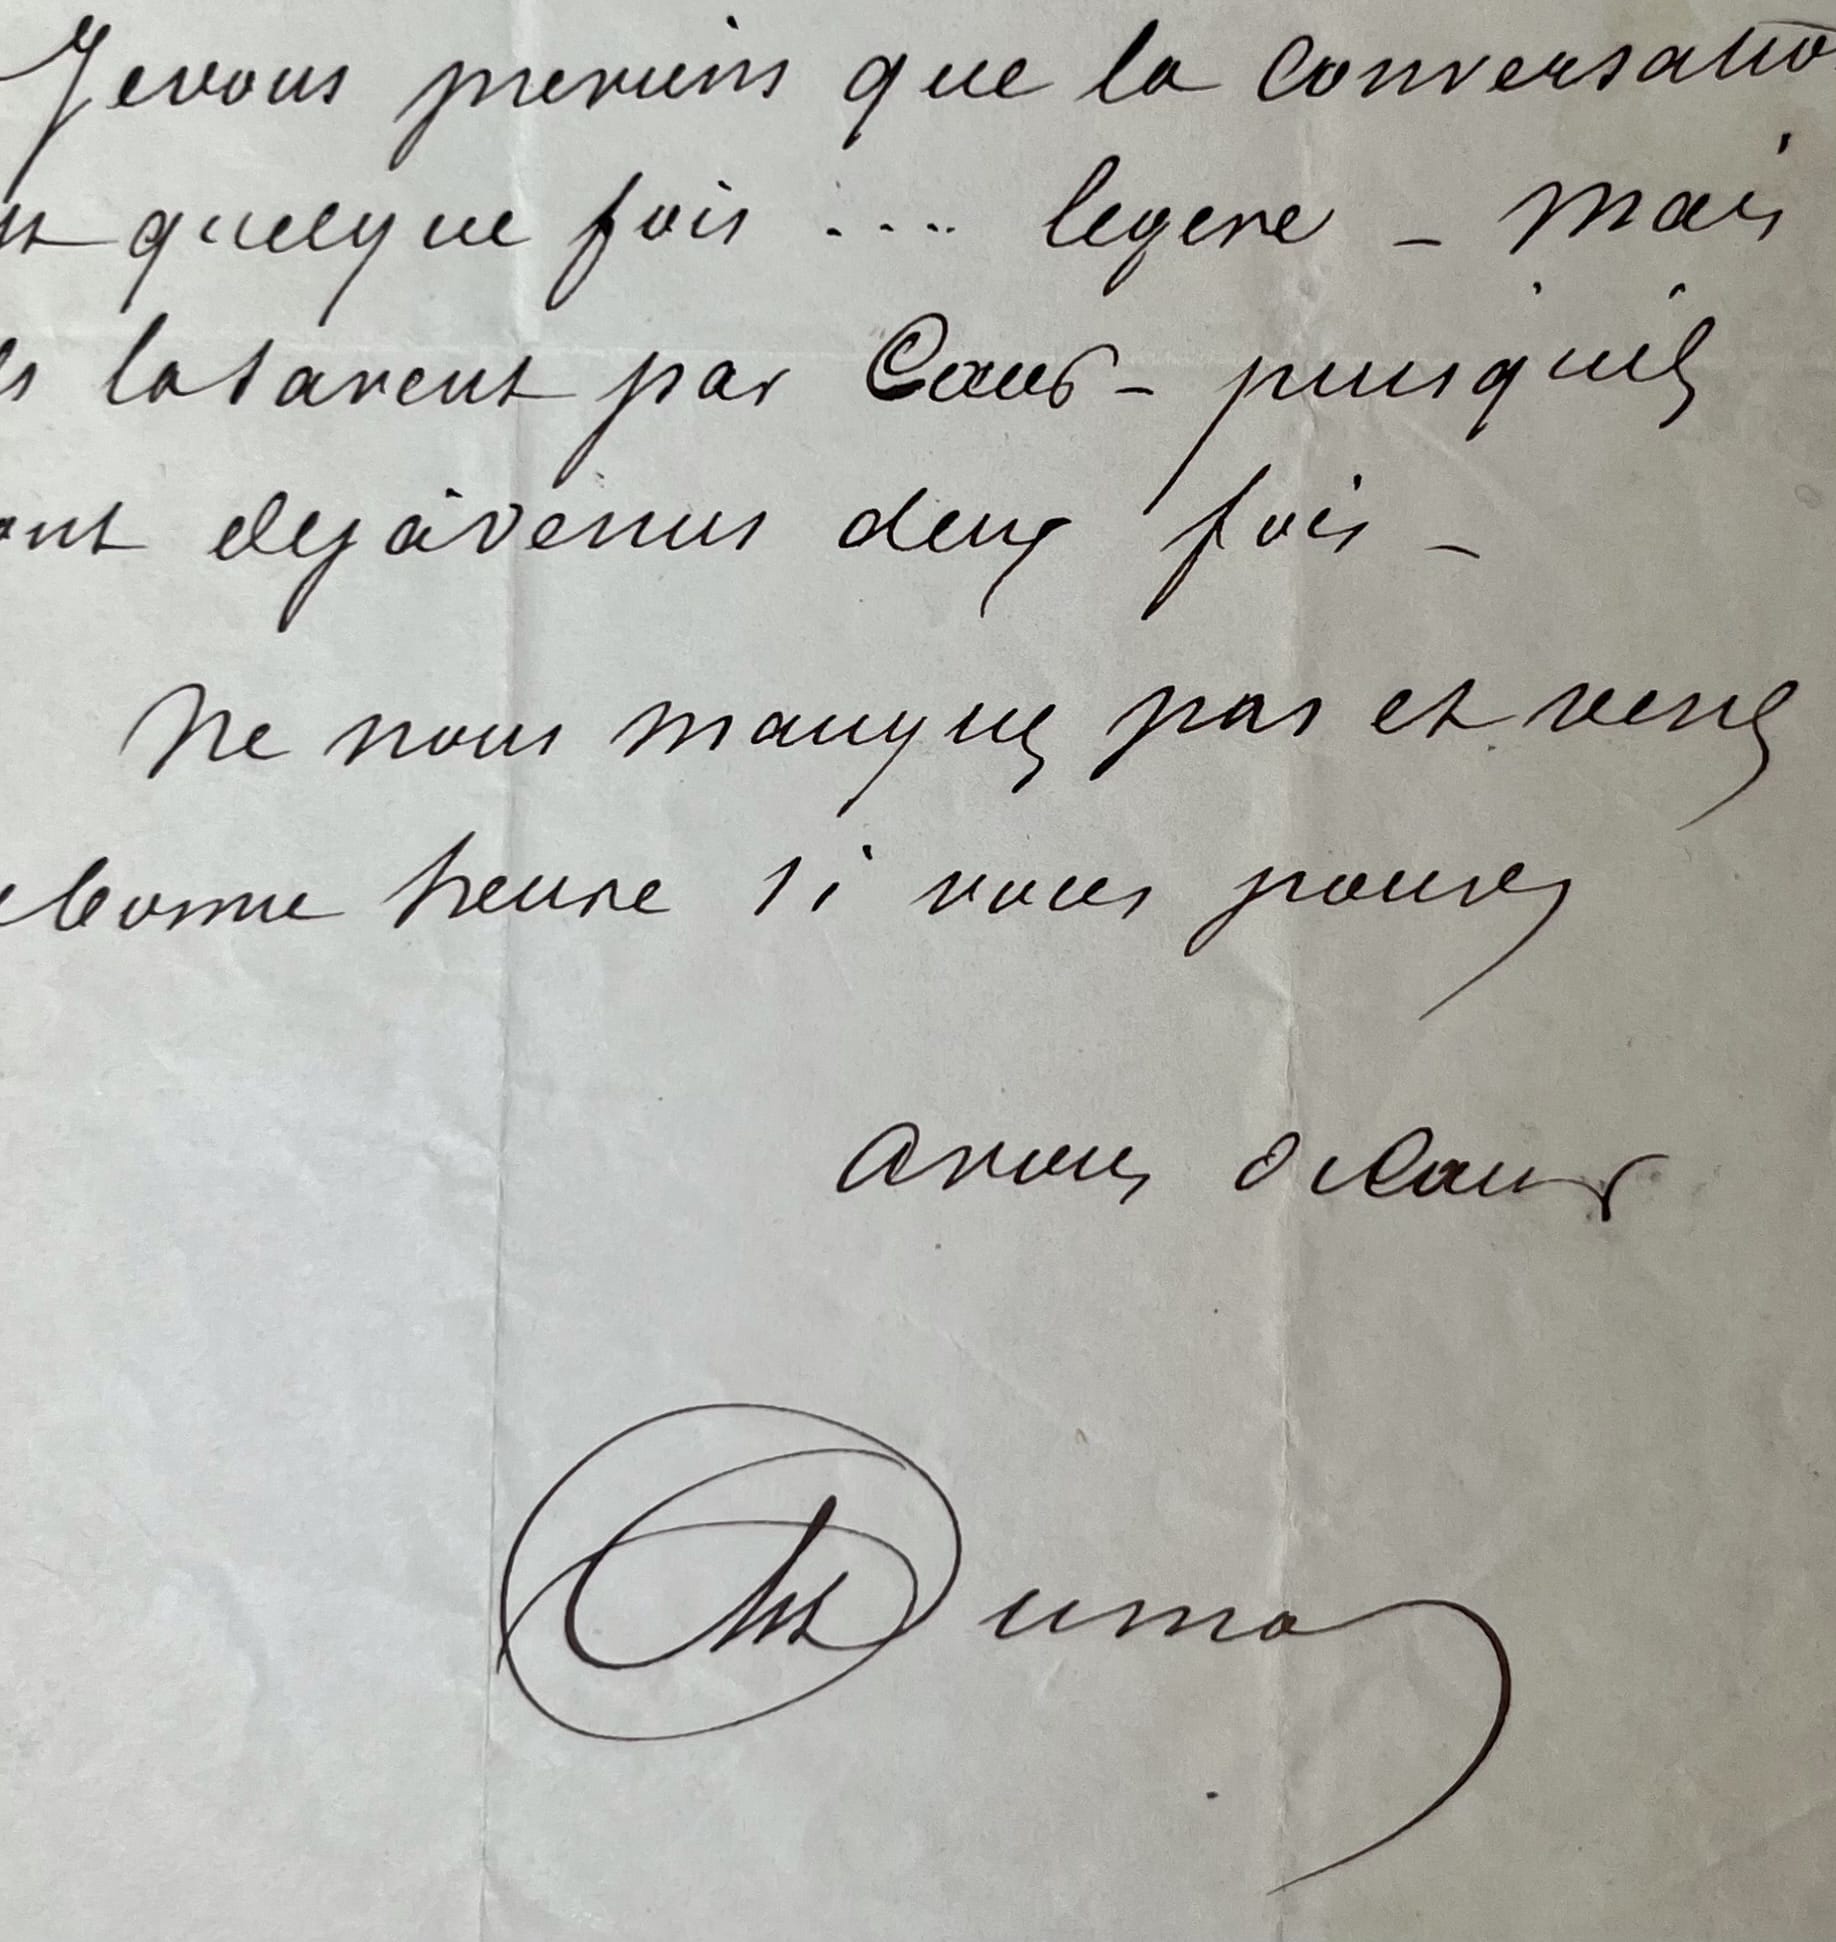 Je vous previens que la Conversatio
est quelque fois .... legere – Mais
ils la savent par Cœur – puisquils
ont dejà venus deux fois –
Ne nous manquez pas et venez
de bonne heure si vous pouvez
a vous de Cœur
Dumas